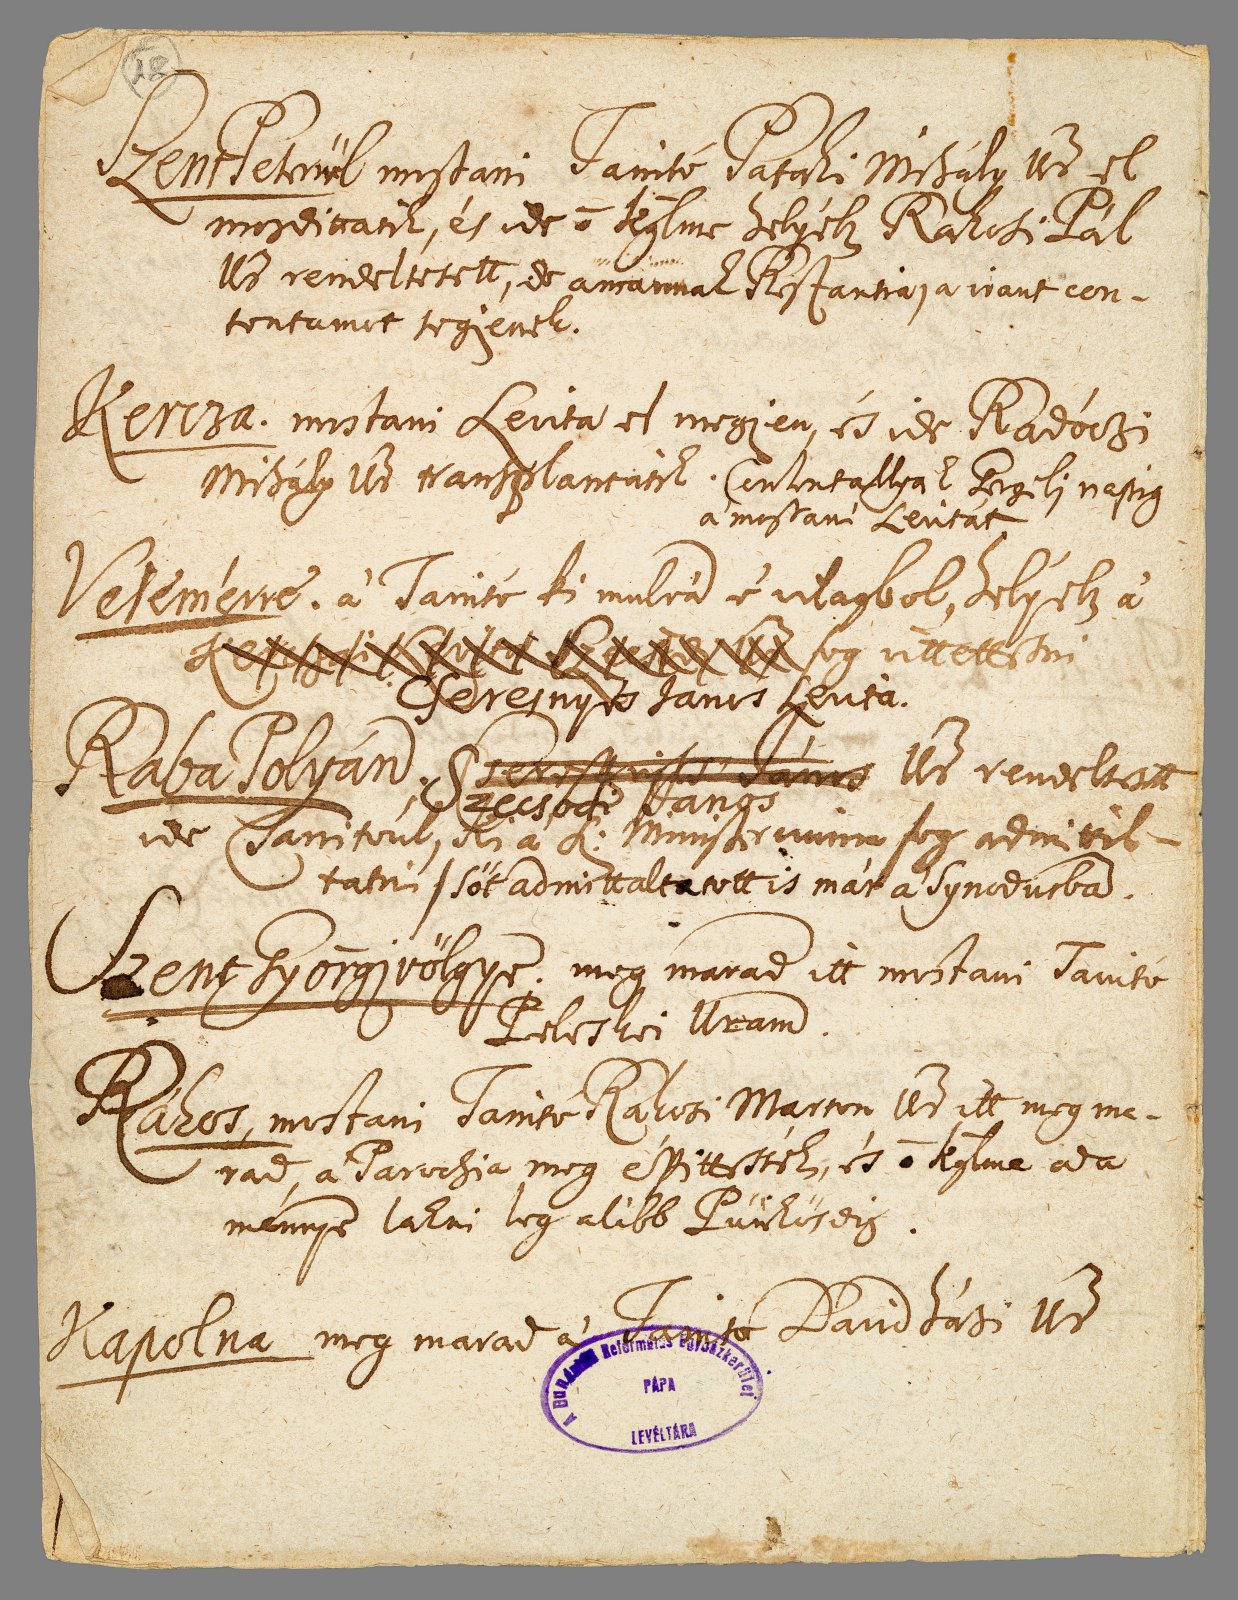 18
Szent Petrül mostani Tanitó Pataki Mihály Ur̃ el
mozdittatik, és ide ő kglme helyéb Rakosi Pál
Ur̃ rendeltetett, de amannak Restantiaja iránt con-
tentumot tegjenek.
Kercza. mostani Levita el megjen, és ide Radóczi
Mihály Ur̃ transplantatik. Contentallyak Gergelj napig
a mostani Levitát
Velemérre. á Tanitó ki mulvã é világbol, helyéb á
fog vitettetni
Cseresnyés Janos Levita.
Raba Polyán, Cseresnyés János Ur̃ rendeltetett
Szecsodi Janos
ide Tanitoúl, ki á S: Ministeriumra fog admittál-
tatni / sőt admittaltatott is már á Synodusbã.
Szent Györgjvölgyẽ. meg marad itt mostani Tanitó
Peleskei Uram.
Rákos, mostani Tanitó Rakosi Marton Ur̃ itt meg ma-
rad, a Parochia meg épittessék, és ő kglme oda
mennyẽ lakni leg alább Pünkösdig.
Kapolna meg marad á Tanitó Davidházi Ur̃
A Dunántúli Református Egyházkerület
PÁPA
LEVÉLTÁRA